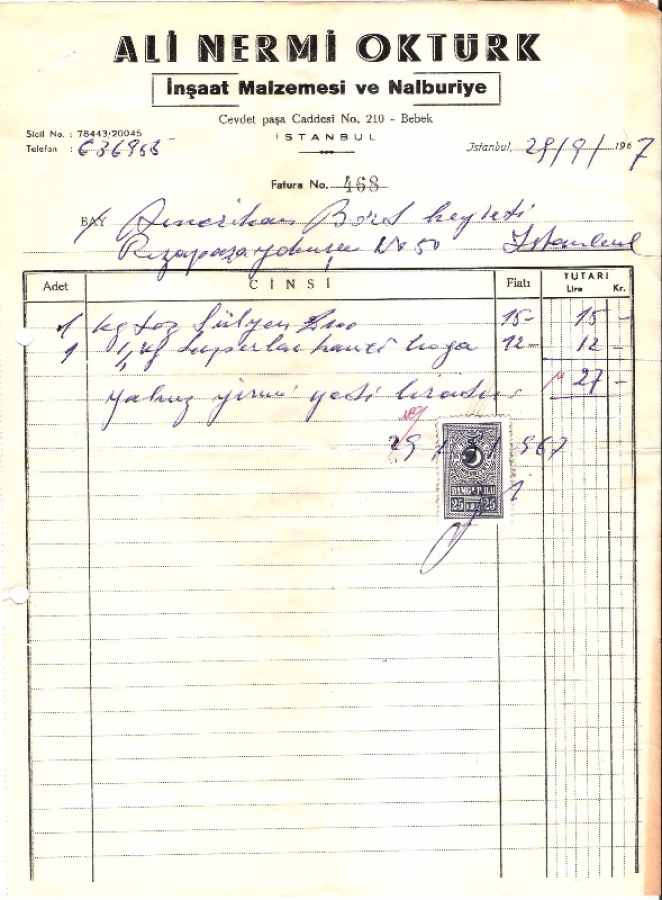 ALİ NERMİ OKTÜRK
İnşaat Malzemesi ve Nalburiye
Cevdet paşa Caddesi No. 210 - Bebek
İSTANBUL
Sicil No. : 78443/20045
Telefon : 636965
İstanbul, 29/9/1967
Fatura No. 468
BAY Amerikan Bord heyeti
Rızapaşa yokuşu No 50 İstanbul
Adet CİNSİ Fiatı TUTARI
Lira Kr.
1 kg toz Sülyen 15- 15-
1 1/2 kg haki boya 12- 12-
27-
yalnız yirmi yedi liradır
29 9 1967
DAMGA PULU
25 25